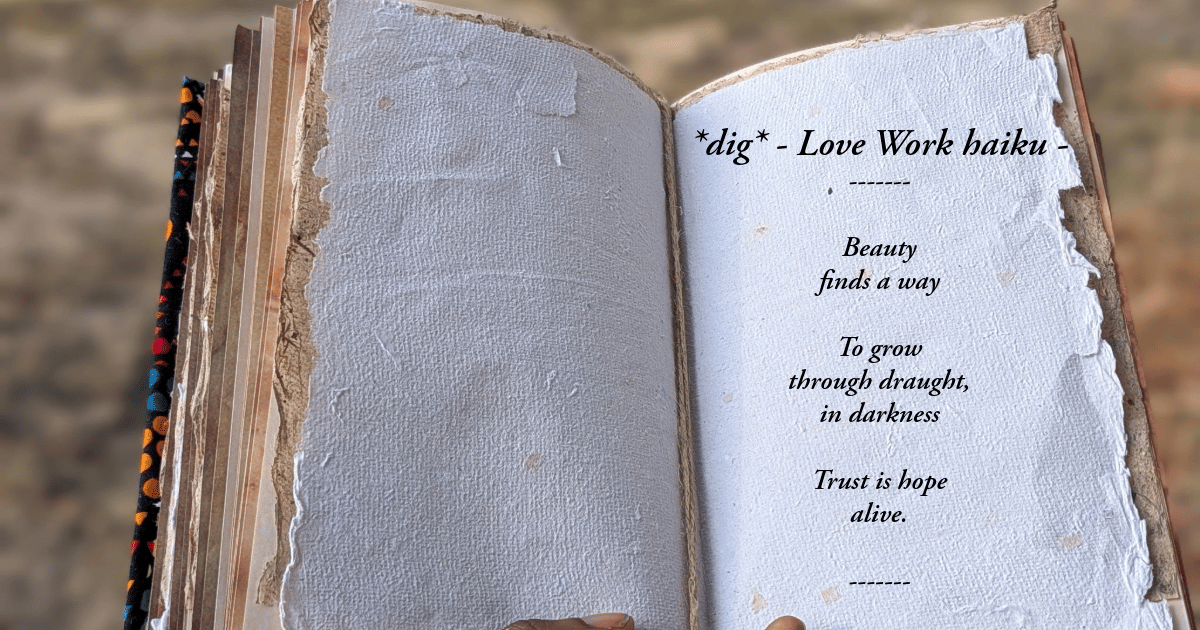 *dig* - Love Work haiku -
-------
Beauty
finds a way
To grow
through draught,
in darkness
Trust is hope
alive.
-------